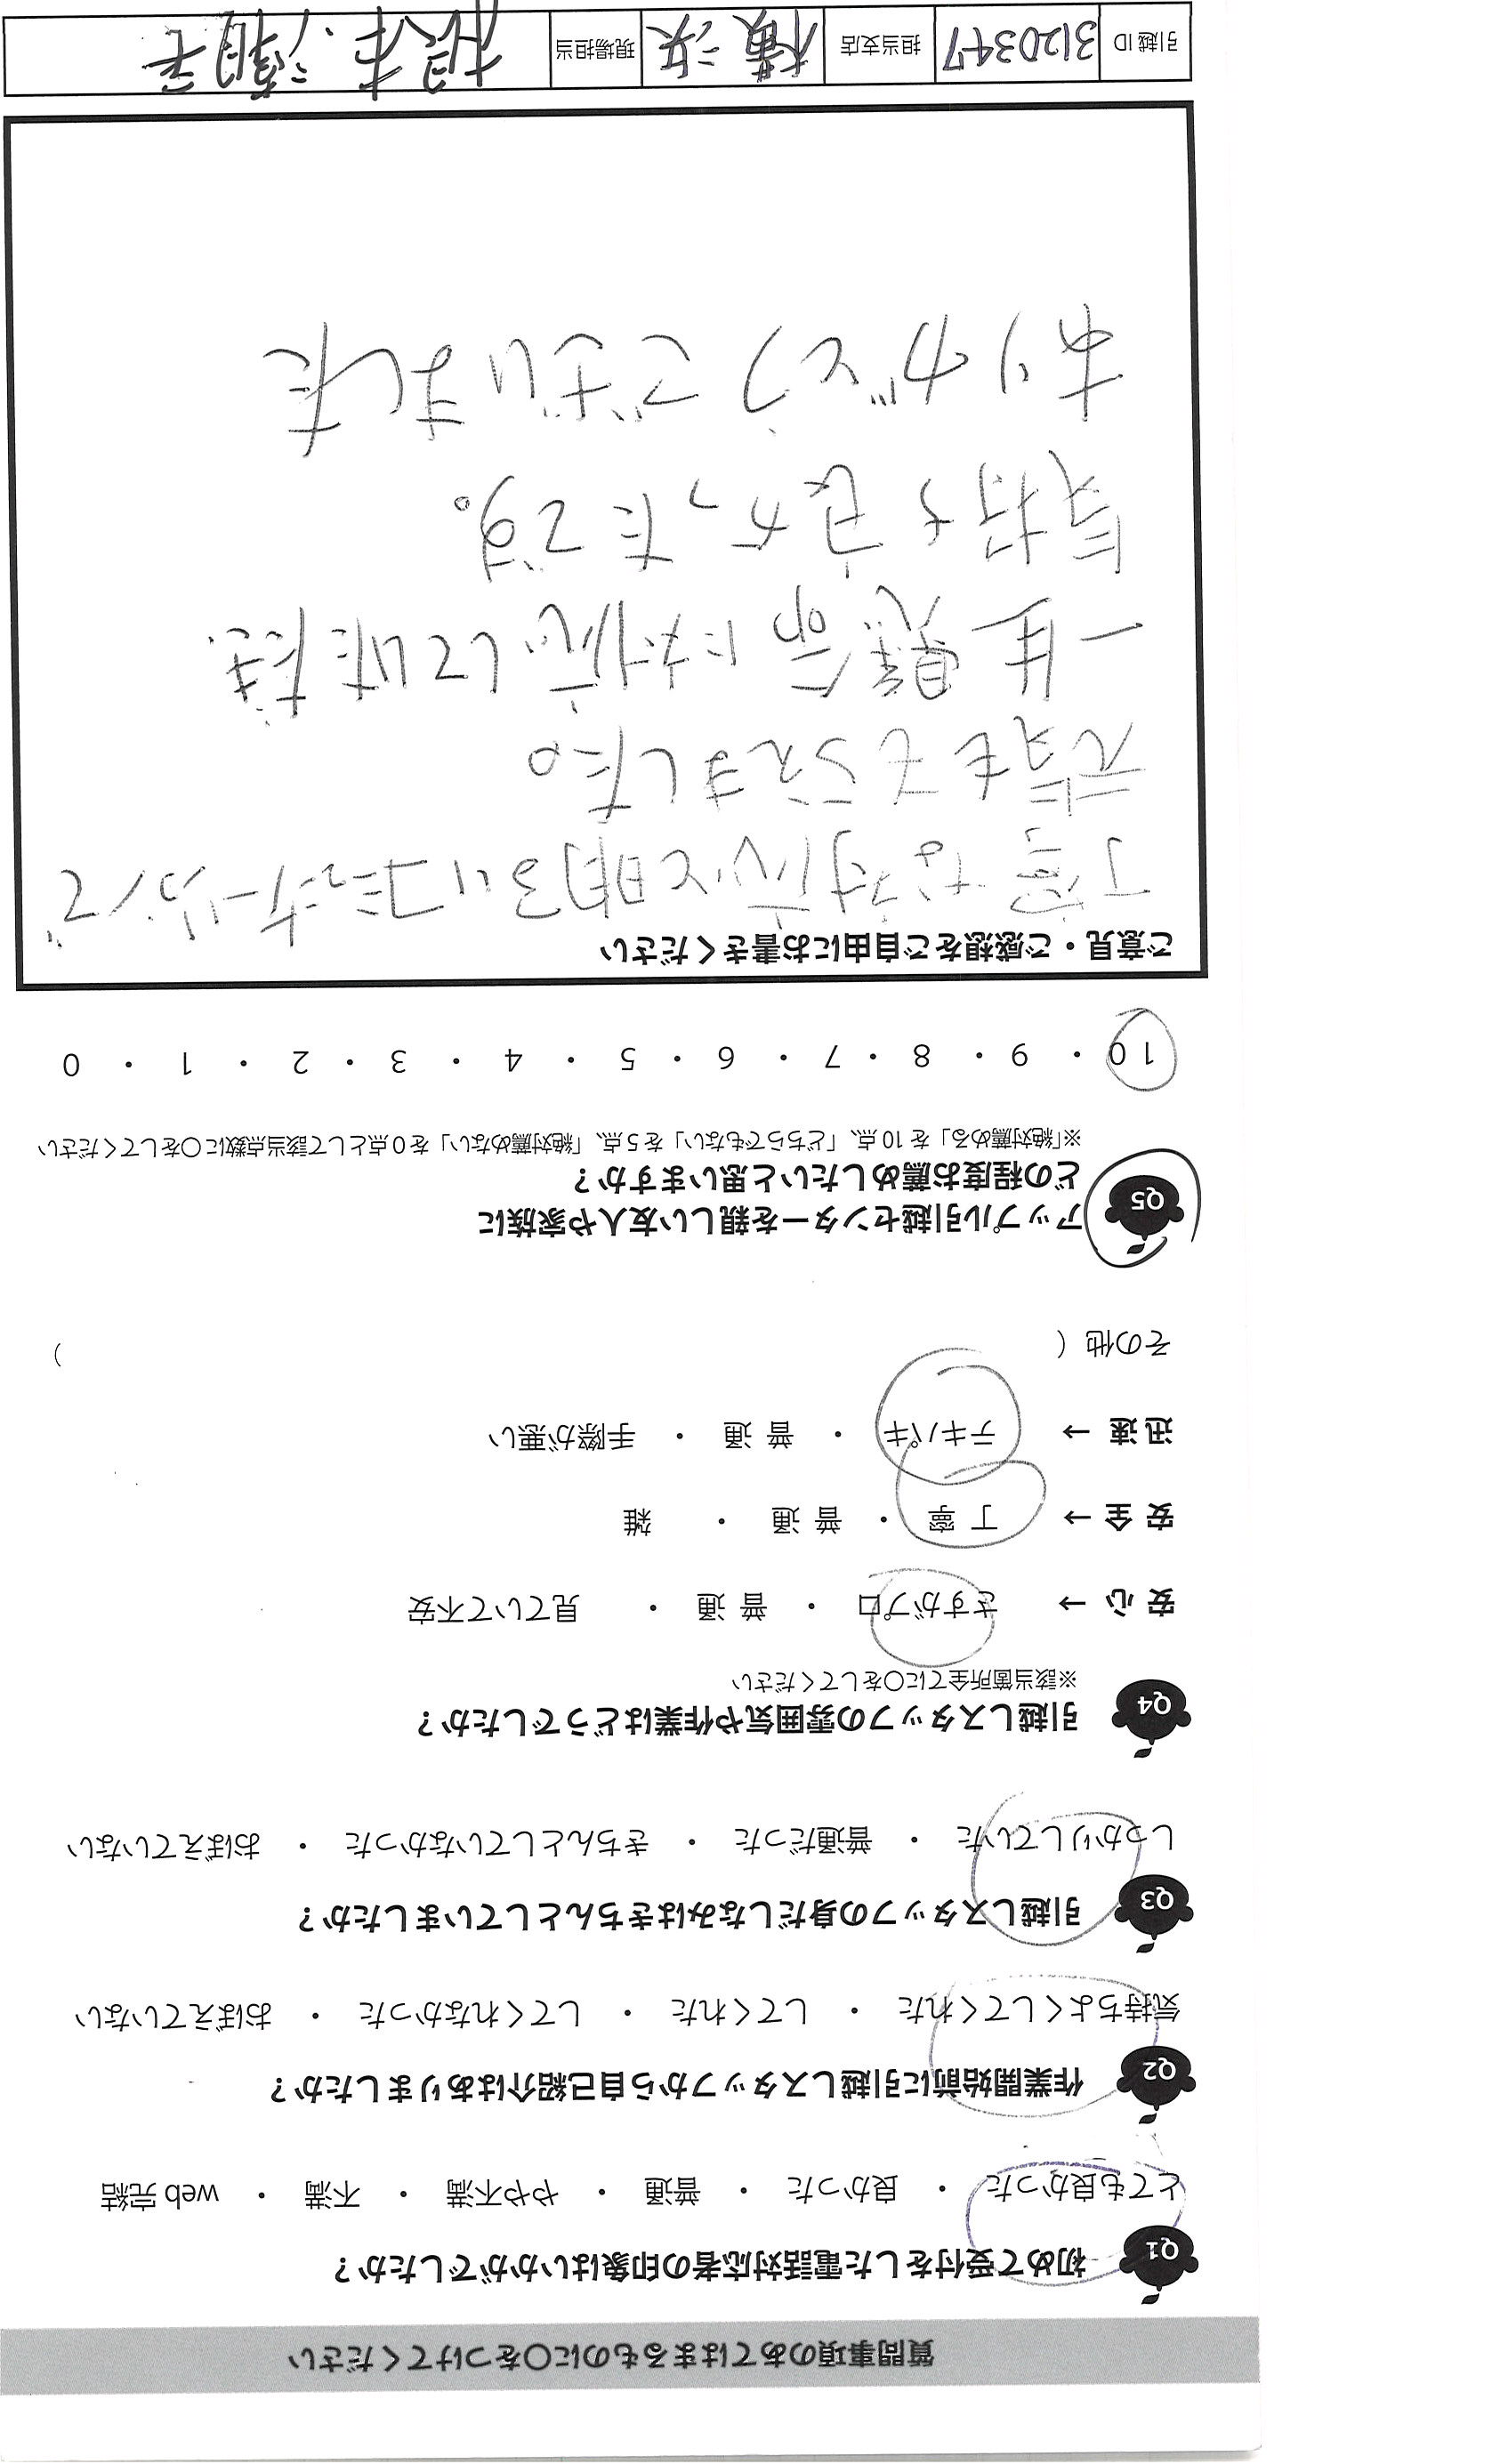 質問事項のあてはまるものに○をつけてください
Q1 初めて受付をした電話対応者の印象はいかがでしたか？
とても良かった ・ 良かった ・ 普通 ・ やや不満 ・ 不満 ・ web 完結
Q2 作業開始前に引越しスタッフから自己紹介はありましたか？
気持ちよくしてくれた ・ してくれた ・ してくれなかった ・ おぼえていない
Q3 引越しスタッフの身だしなみはきちんとしていましたか？
しっかりしていた ・ 普通だった ・ きちんとしていなかった ・ おぼえていない
Q4 引越しスタッフの雰囲気や作業はどうでしたか？
※該当箇所全てに○をしてください
安 心 → さすがプロ ・ 普 通 ・ 見ていて不安
安 全 → 丁 寧 ・ 普 通 ・ 雑
迅 速 → テキパキ ・ 普 通 ・ 手際が悪い
その他（ ）
Q5 アップル引越センターを親しい友人や家族に
どの程度お薦めしたいと思いますか？
※「絶対薦める」を 10 点、「どちらでもない」を 5 点、「絶対薦めない」を 0 点として該当点数に○をしてください
10 ・ 9 ・ 8 ・ 7 ・ 6 ・ 5 ・ 4 ・ 3 ・ 2 ・ 1 ・ 0
ご意見・ご感想をご自由にお書きください
丁寧な対応で明るいコミュニケーションで
元気をもらえました。
一生懸命に対応していただき
気持ち良かったです。
ありがとうございました
引越 ID 3120347 担当支店 横浜 現場担当